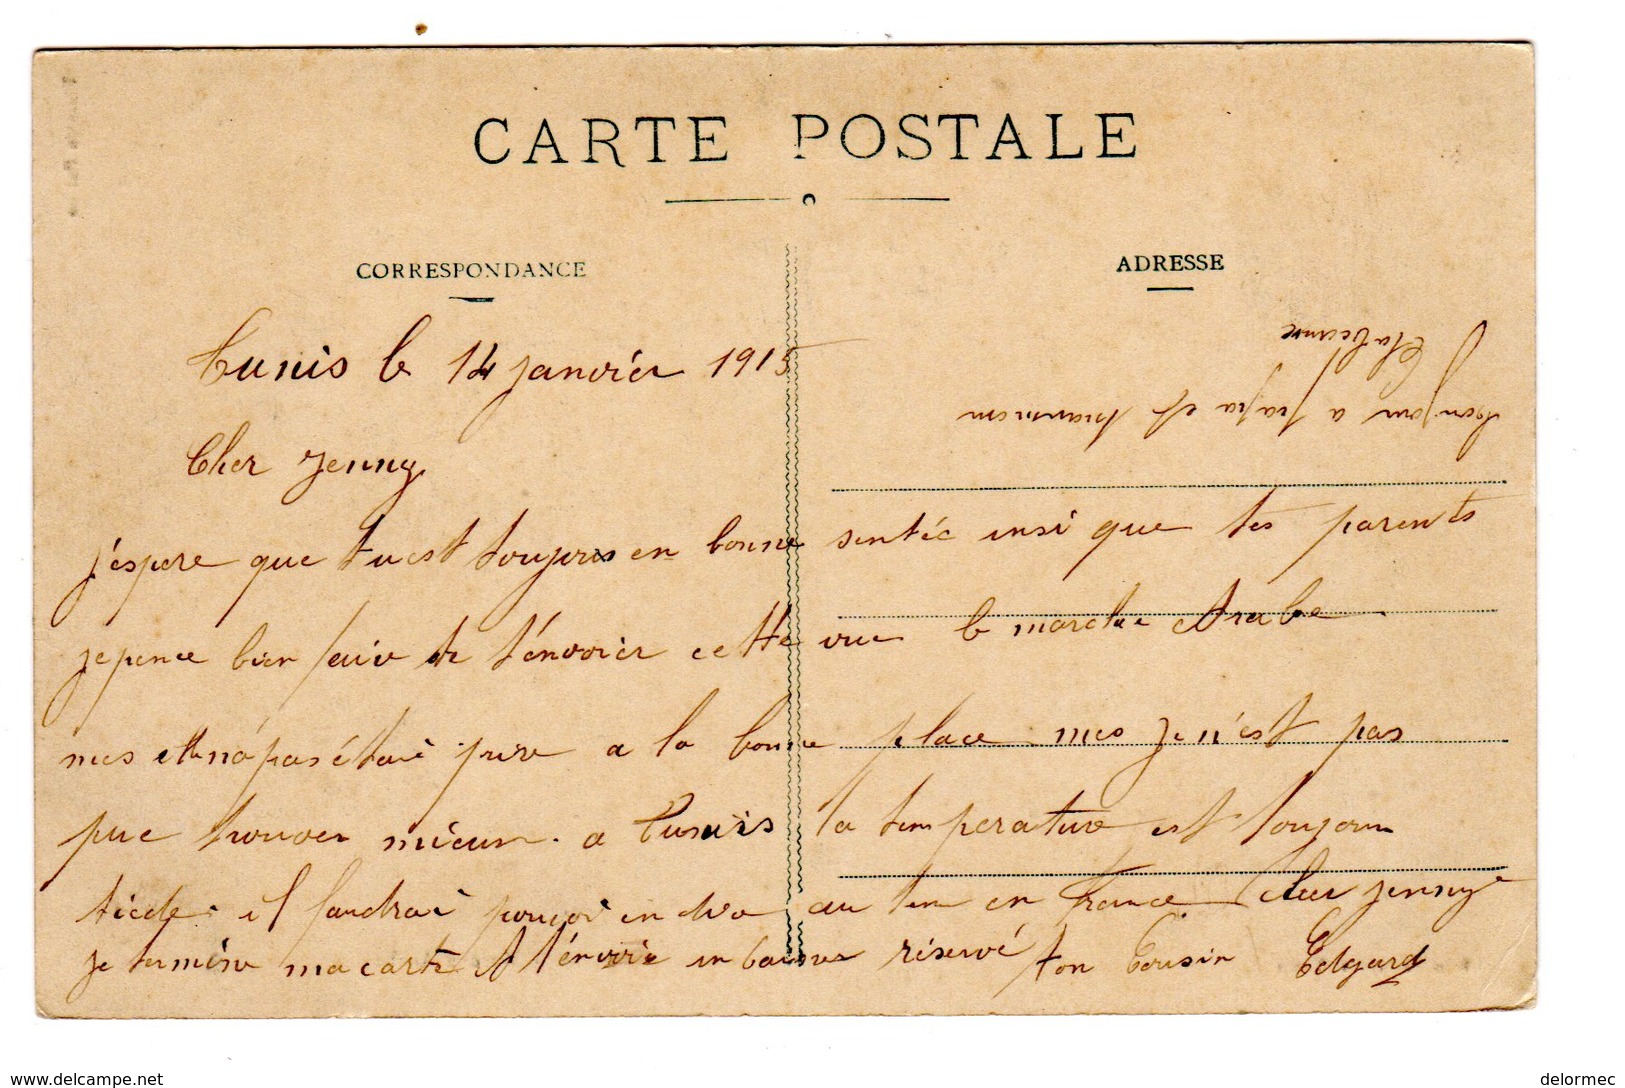 CARTE POSTALE
CORRESPONDANCE
ADRESSE
Tunis le 14 janviér 1915
Cher Jenny
j'espere que tu est toujours en bonne sentéé insi que tes parents
je pence bien faire de t'énvoiér cette vue le marche Arabe
mes elle n'a pas étai prise a la bonne place mes je n'est pas
pue trouver mieux. a Tunis la temperature est toujour
tiede. il faudrai pouvoi en dire au tem en France. Cher Jenny
je termine ma carte et t'énvoie un baiser réservé ton Cousin Edgard
bonjour a papa et maman
et a